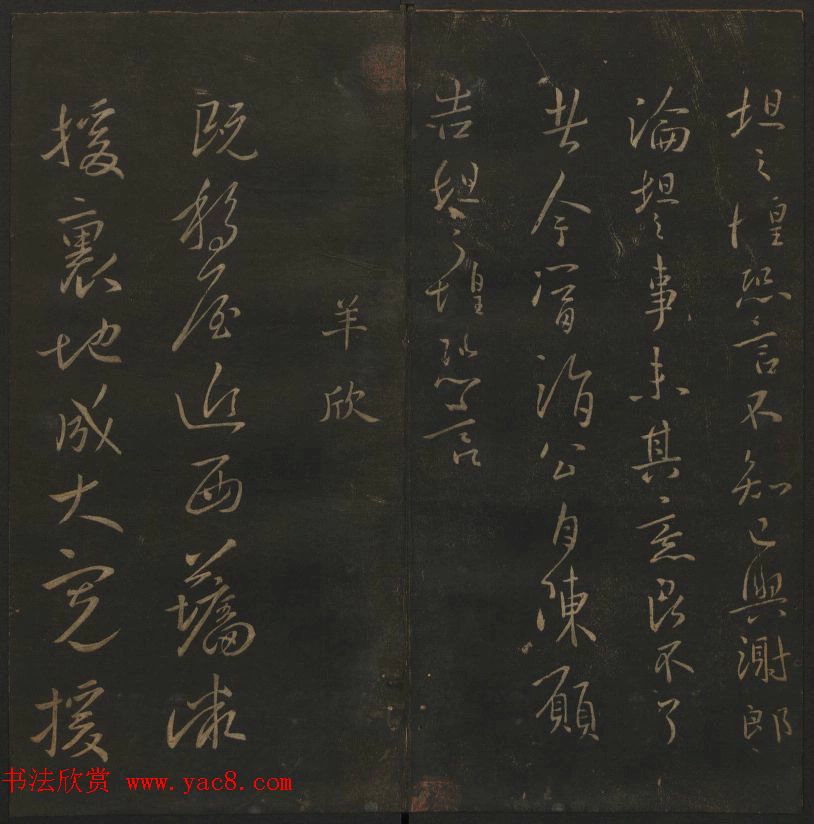 坦之惶恐言不知已與謝郎
論坦之事未其意民不了
者今請公自陳願
告坦之惶恐言
羊欣
既移屋近西
援裏地成大寬援
书法欣赏 www.yac8.com